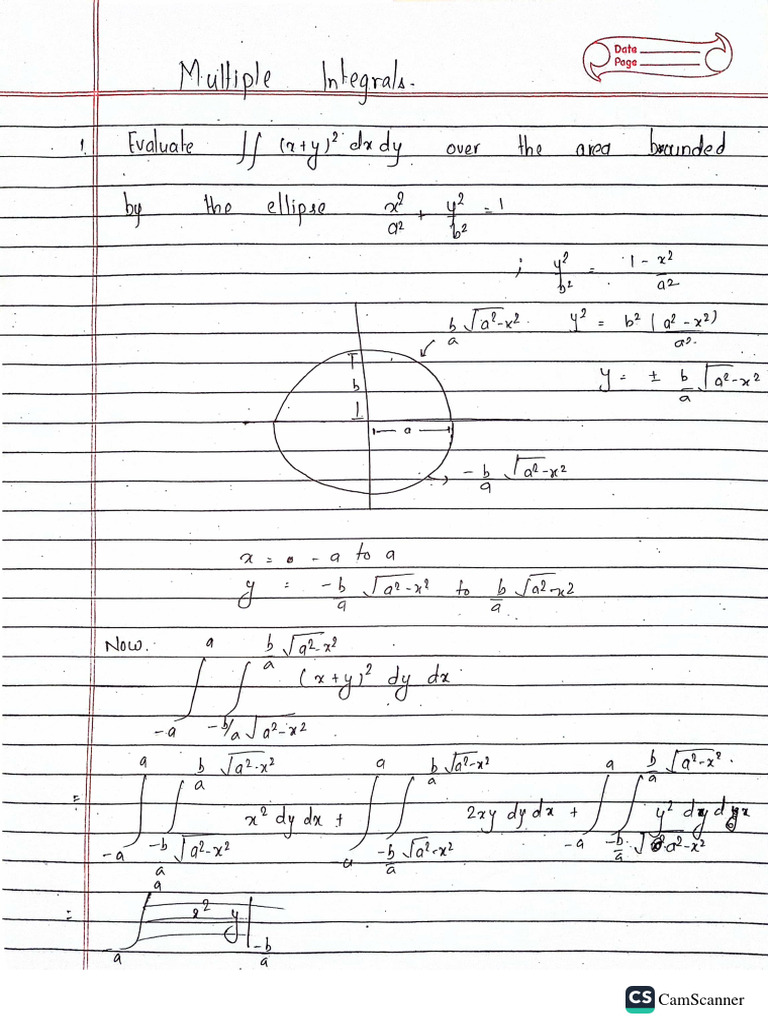 Data
Page
Multiple Integrals.
1. Evaluate ∬ (x+y)² dx dy over the area bounded
by the ellipse x²/a² + y²/b² = 1
; y²/b² = 1 - x²/a²
b/a √a²-x² y² = b² (a² - x²)/a².
y = ± b/a √a²-x²
b
a
-b/a √a²-x²
x = -a to a
y = -b/a √a²-x² to b/a √a²-x²
Now. ∫_{-a}^{a} ∫_{-b/a √a²-x²}^{b/a √a²-x²} (x+y)² dy dx.
= ∫_{-a}^{a} ∫_{-b/a √a²-x²}^{b/a √a²-x²} x² dy dx + ∫_{-a}^{a} ∫_{-b/a √a²-x²}^{b/a √a²-x²} 2xy dy dx + ∫_{-a}^{a} ∫_{-b/a √a²-x²}^{b/a √a²-x².} y² dy dx
CS CamScanner